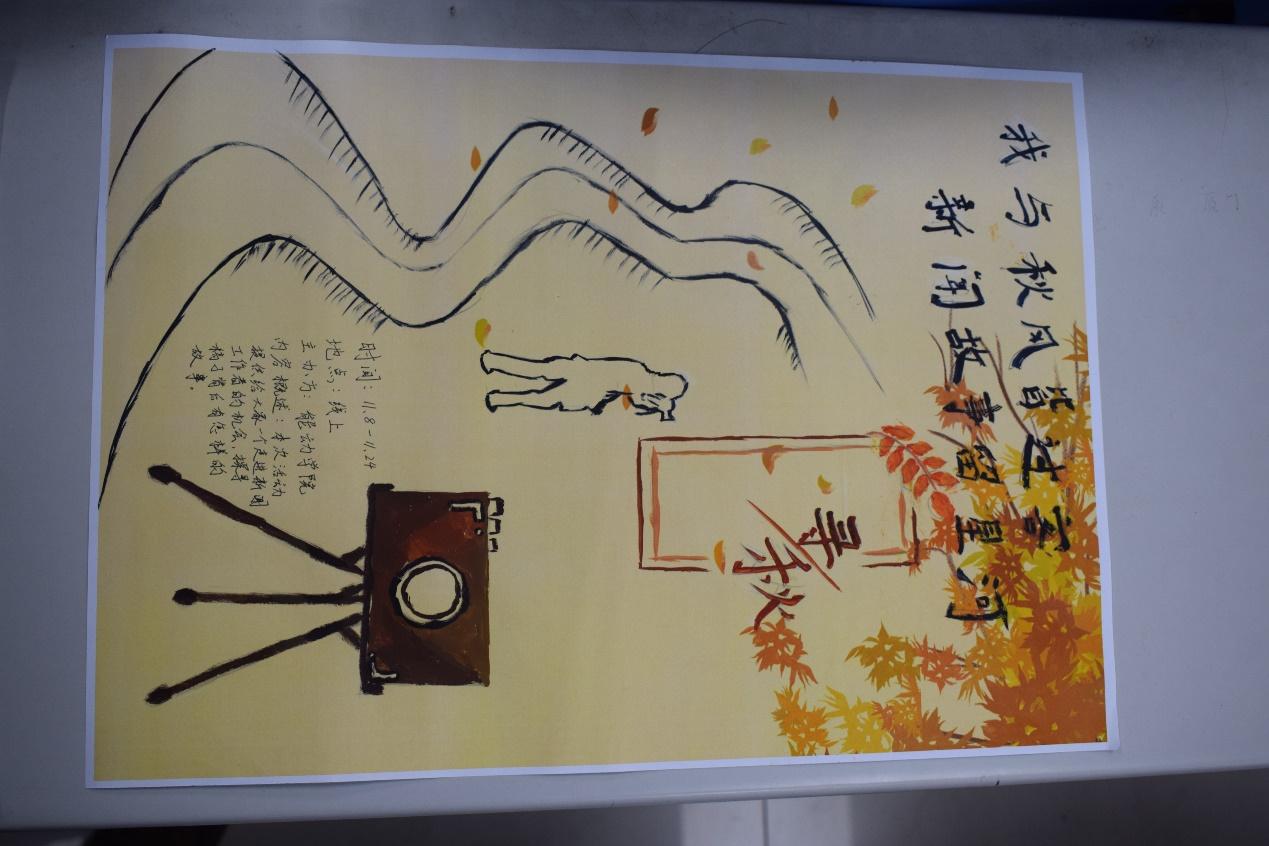 我与秋风皆过客
新闻故事留星河
寻秋
时间：11.8-11.24
地点：线上
主办方：能动学院
内容概述：本次活动
提供给大家一个走进新闻
工作者的机会，探寻
稿子背后有怎样的
故事。